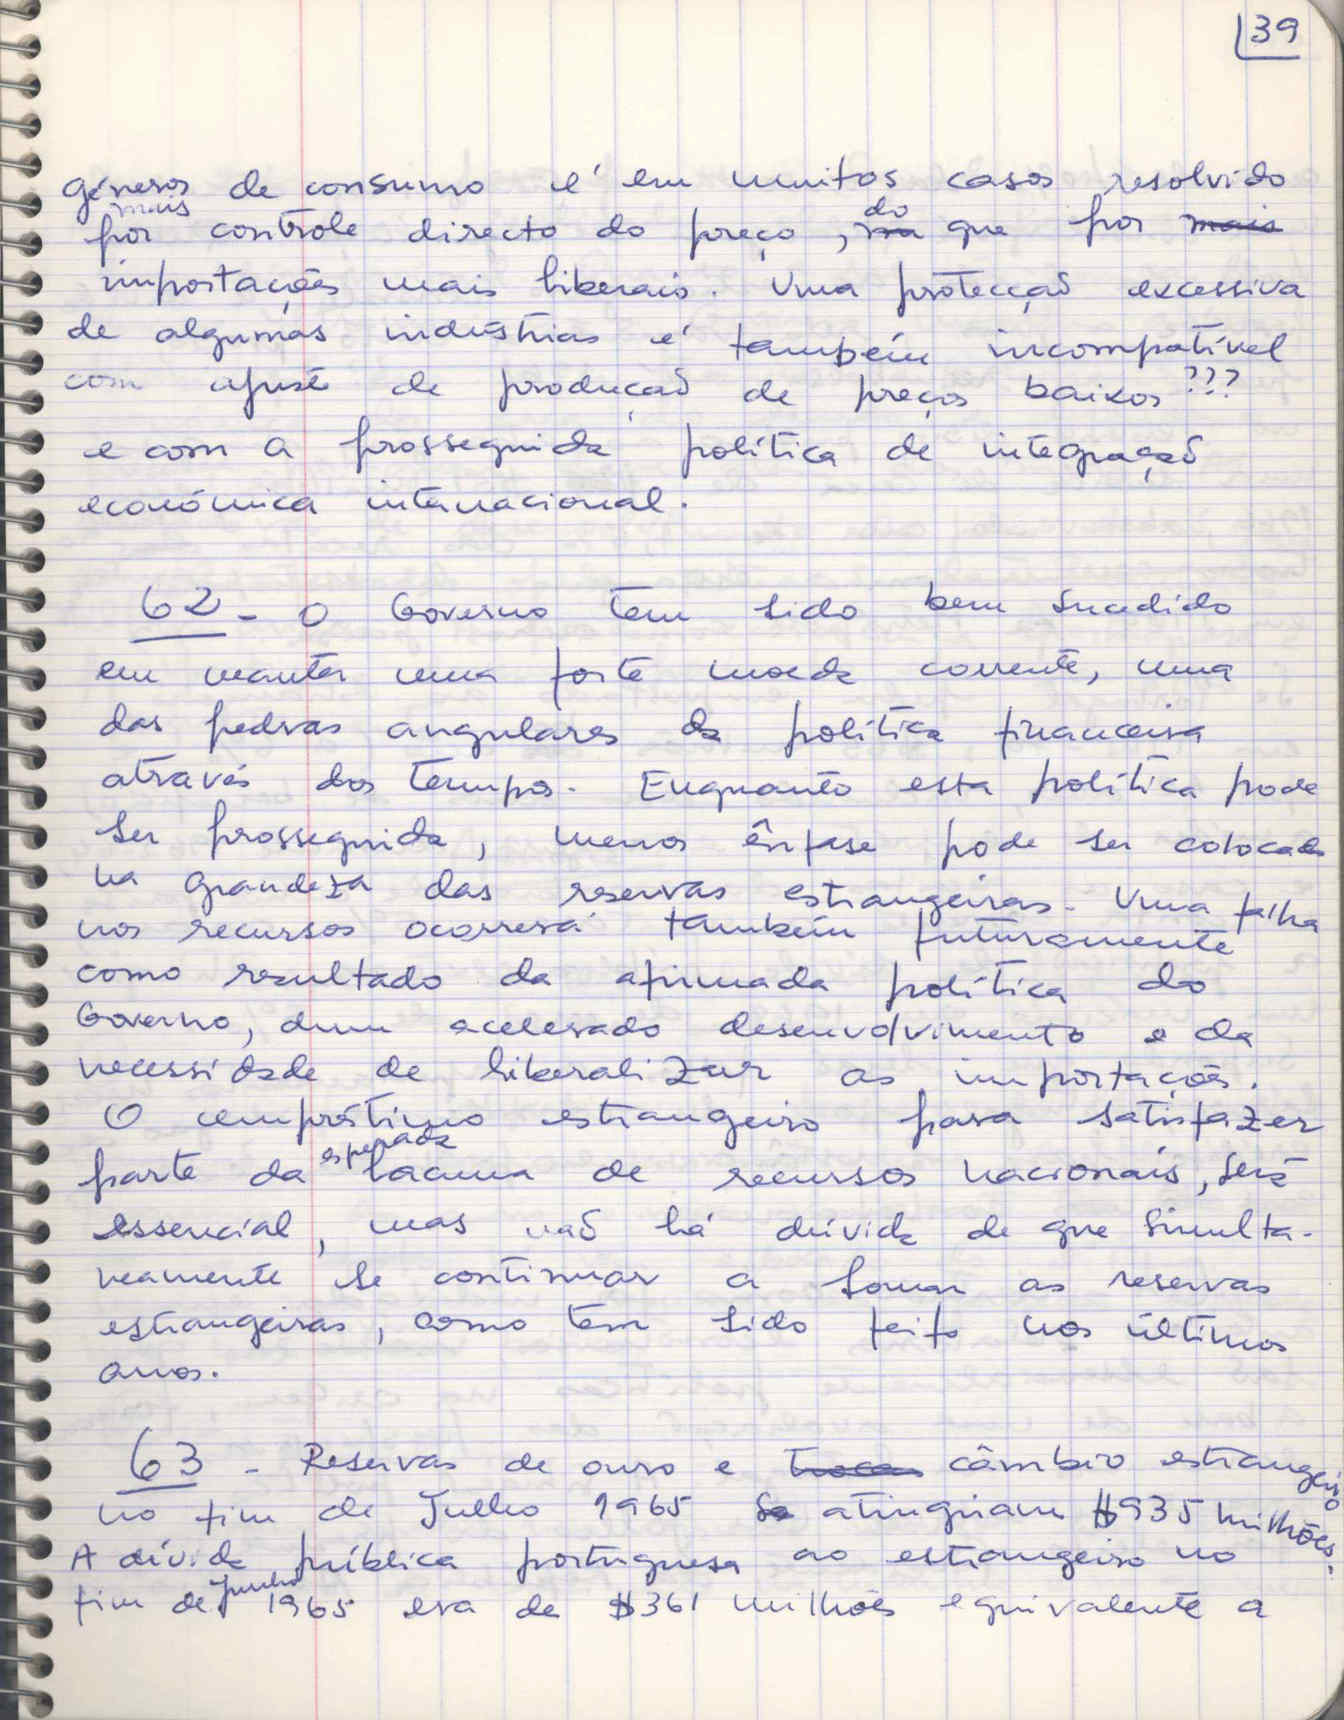 39
géneros de consumo é em muitos casos resolvido
mais do
por controle directo do preço, que por mais
importações mais liberais. Uma protecção excessiva
de algumas indústrias é também incompatível
com ajuste de produção de preços baixos ???
e com a prosseguida política de integração
económica internacional.
62 - O Governo tem sido bem sucedido
em manter uma forte moeda corrente, uma
das pedras angulares da política financeira
através dos tempos. Enquanto esta política pode
ser prosseguida, menos ênfase pode ser colocada
na grandeza das reservas estrangeiras. Uma falha
nos recursos ocorrerá também futuramente
como resultado da afirmada política do
Governo, dum acelerado desenvolvimento e da
necessidade de liberalizar as importações.
O empréstimo estrangeiro para satisfazer
esperada
parte da lacuna de recursos nacionais, será
essencial, mas não há dúvida de que simulta-
neamente se continuar a somar as reservas
estrangeiras, como tem sido feito nos últimos
anos.
63 - Reservas de ouro e trocas câmbio estrangeiro
no fim de Julho 1965 atingiram $935 milhões.
A dívida pública portuguesa ao estrangeiro no
Junho
fim de 1965 era de $361 milhões equivalente a